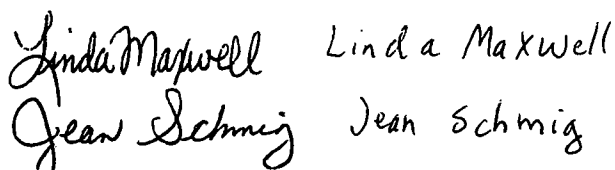 Linda Maxwell Linda Maxwell
Jean Schmig Jean Schmig